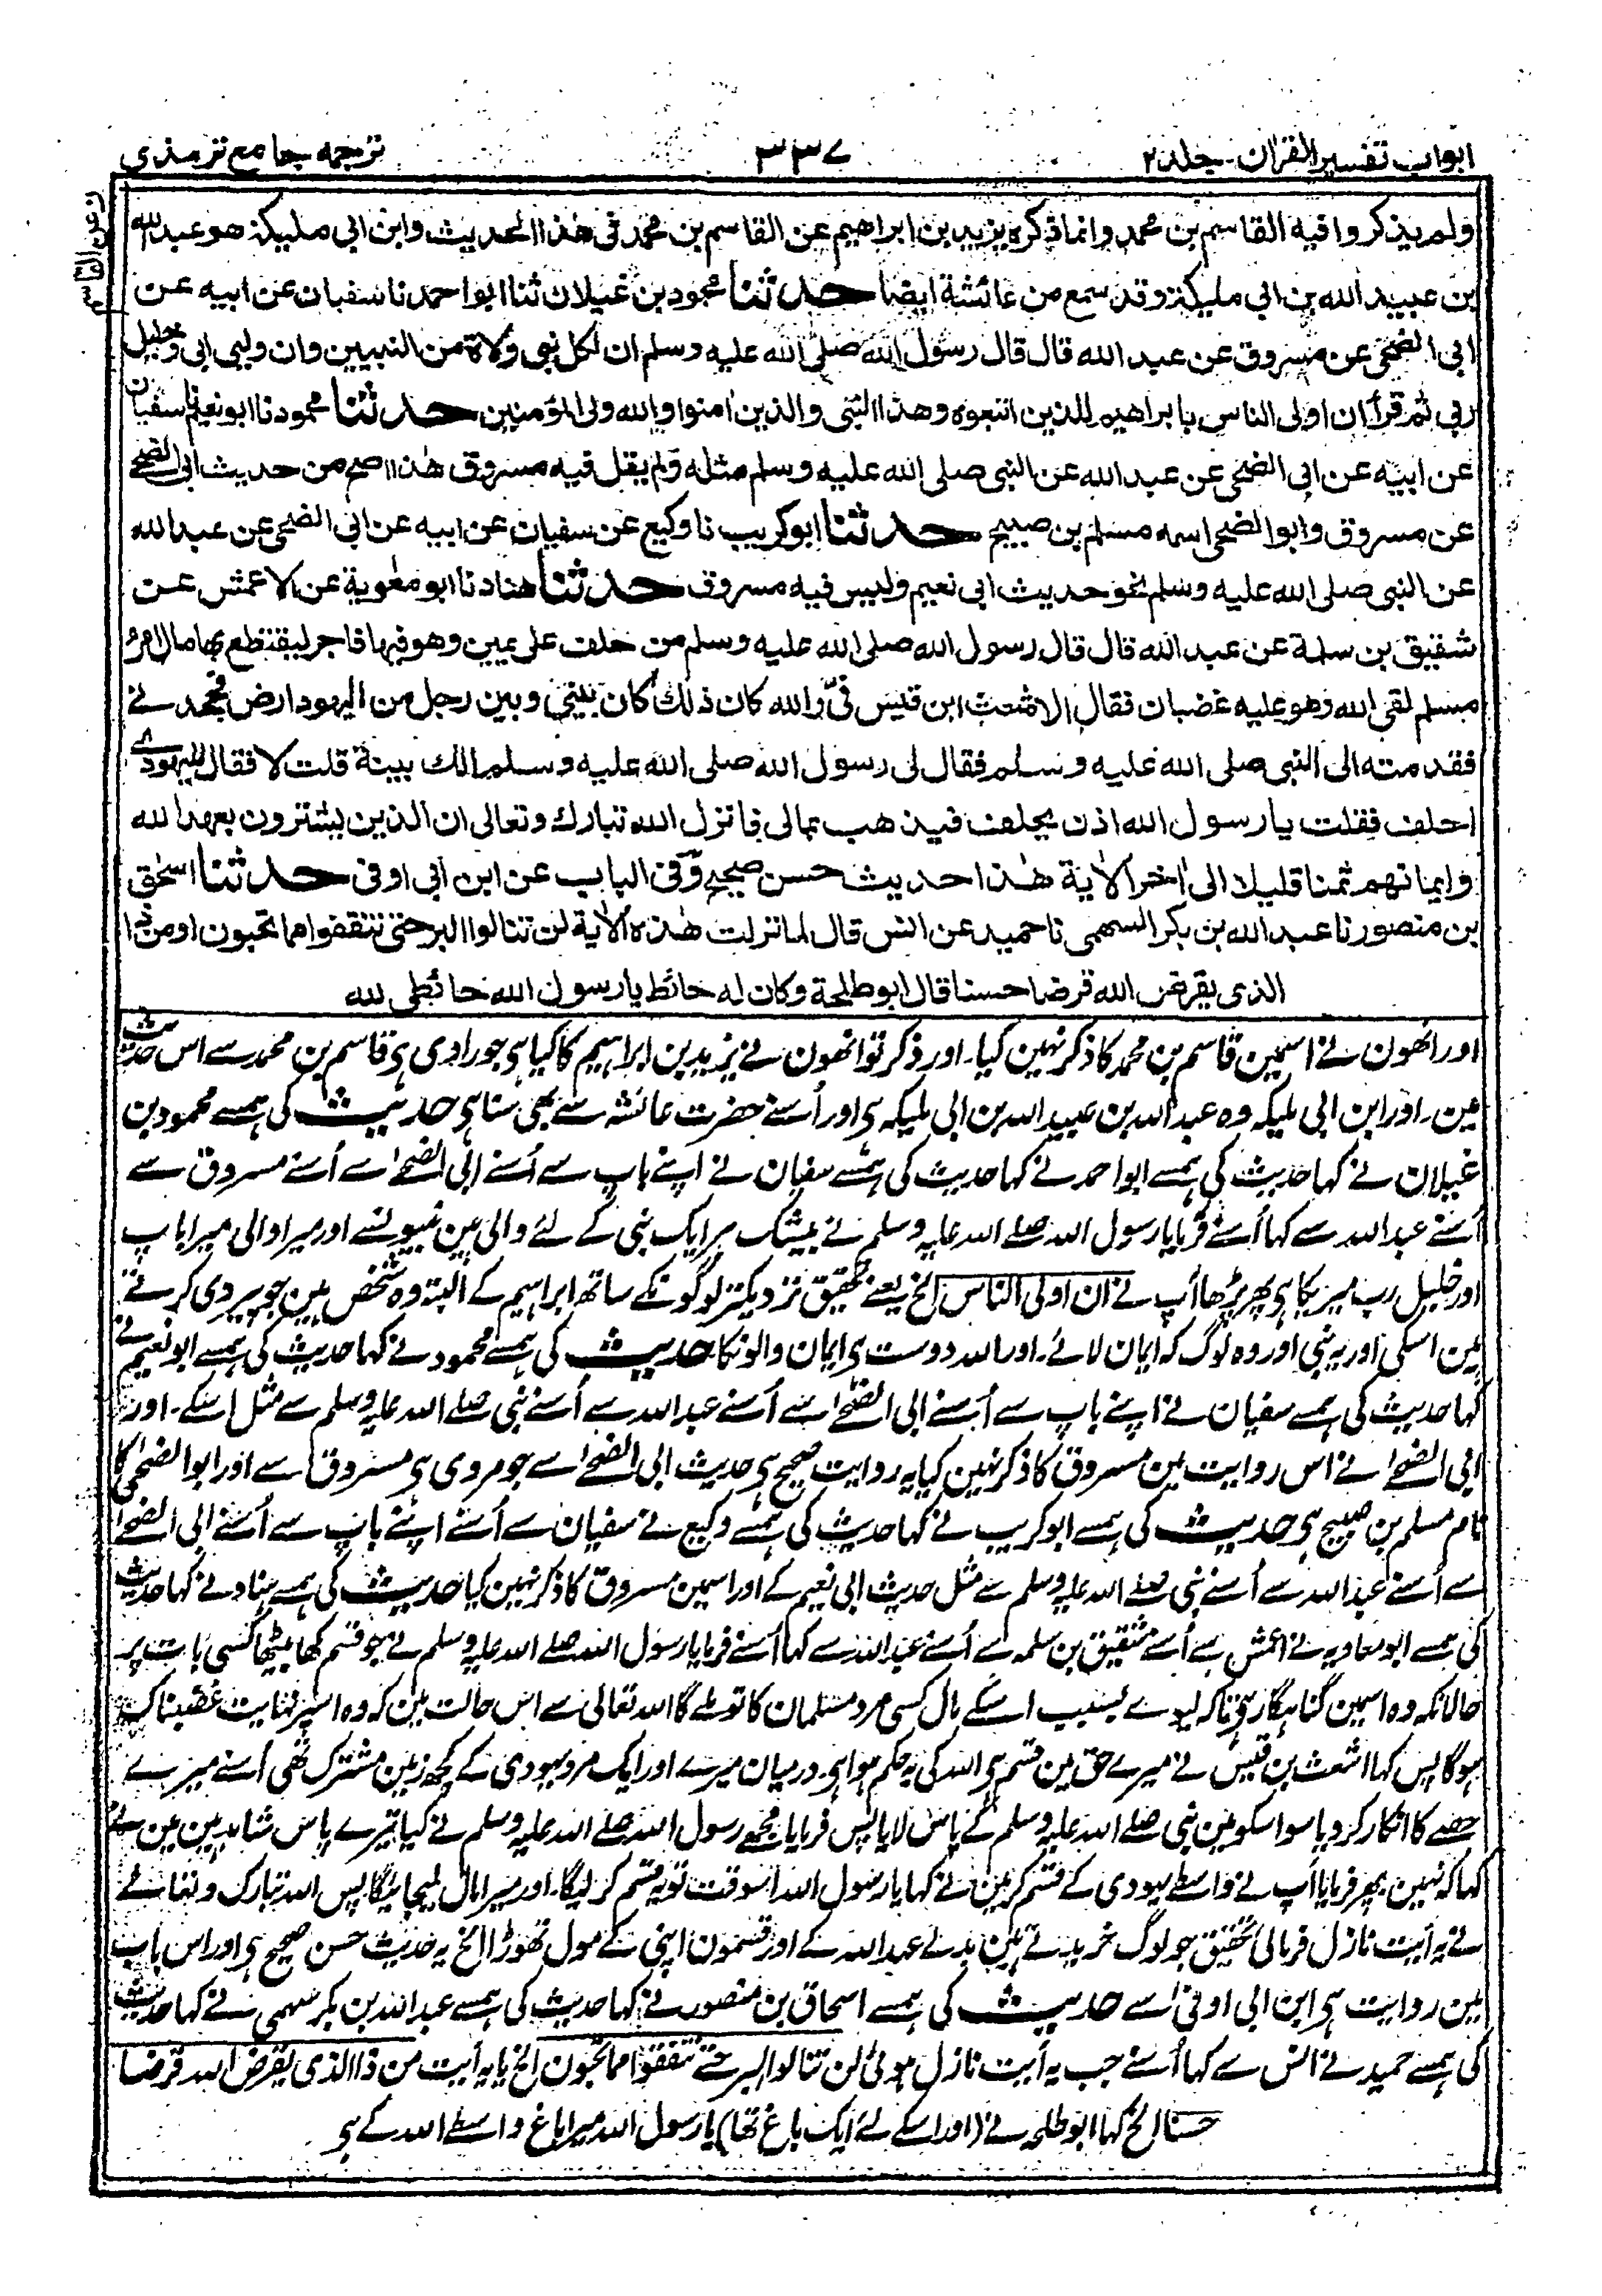 ابواب تفسیر القران - جلد ۲
۳۳۷
ترجمہ جامع ترمذی
عن القاسم
ولم یذکروا فیه القاسم بن محمد وانما ذکره یزید بن ابراهیم عن القاسم بن محمد فی هذا الحدیث وابن ابی ملیکة هو عبد الله
بن عبید الله بن ابی ملیکة وقد سمع من عائشة ایضا حدثنا محمود بن غیلان ثنا ابو احمد نا سفیان عن ابیه عن
ابی الضحی عن مسروق عن عبد الله قال قال رسول الله صلی الله علیه وسلم ان لکل نبی ولاة من النبیین وان ولیی ابی وخلیل
ربی ثم قرأ ان اولی الناس بابراهیم للذین اتبعوه وهذا النبی والذین اٰمنوا والله ولی المؤمنین حدثنا محمود نا ابو نعیم نا سفیان
عن ابیه عن ابی الضحی عن عبد الله عن النبی صلی الله علیه وسلم مثله ولم یقل فیه مسروق هذا اصح من حدیث ابی الضحی
عن مسروق وابو الضحی اسمه مسلم بن صبیح حدثنا ابو کریب نا وکیع عن سفیان عن ابیه عن ابی الضحی عن عبد الله
عن النبی صلی الله علیه وسلم نحو حدیث ابی نعیم ولیس فیه مسروق حدثنا هناد نا ابو معٰویة عن الاعمش عن
شقیق بن سلمة عن عبد الله قال قال رسول الله صلی الله علیه وسلم من حلف علی یمین وهو فیها فاجر لیقتطع بها مال امرئ
مسلم لقی الله وهو علیه غضبان فقال الاشعث ابن قیس فیّ والله کان ذلك کان بینی وبین رجل من الیهود ارض فجحدنے
فقدمته الی النبی صلی الله علیه وسلم فقال لی رسول الله صلی الله علیه وسلم الك بینة قلت لا فقال للیهودی
احلف فقلت یا رسول الله اذن یحلف فیذهب بمالی فانزل الله تبارك وتعالی ان الذین یشترون بعهد الله
وایمانهم ثمنا قلیلا الی اٰخر الاٰیة هٰذا حدیث حسن صحیح وفی الباب عن ابن ابی اوفی حدثنا اسحٰق
بن منصور نا عبد الله بن بکر السهمی نا حمید عن انس قال لما نزلت هٰذه الاٰیة لن تنالوا البر حتی تنفقوا مما تحبون او من ذا
الذی یقرض الله قرضا حسنا قال ابو طلحة وکان له حائط یا رسول الله حائطی لله
اور انھون نے اسمین قاسم بن محمد کا ذکر نہین کیا۔ اور ذکر تو انھون نے یزید بن ابراہیم کا کیا ہی جو راوی ہی قاسم بن محمد سے اس حدیث
مین۔ اور ابن ابی ملیکہ وہ عبد اللہ بن عبید اللہ بن ابی ملیکہ ہی اور اُسنے حضرت عائشہ سے بھی سنا ہی حدیث کی ہمسے محمود بن
غیلان نے کہا حدیث کی ہمسے ابو احمد نے کہا حدیث کی ہمسے سفیان نے اپنے باپ سے اُسنے ابی الضحےٰ سے اُسنے مسروق سے
اُسنے عبد اللہ سے کہا اُسنے فرمایا رسول اللہ صلے اللہ علیہ وسلم نے بیشک ہر ایک نبی کے لئے والی ہین نبیونسے اور میرا والی میرا باپ
اور خلیل رب میریکا ہی پھر پڑھا آپ نے ان اولی الناس الخ یعنے تحقیق نزدیکتر لوگونکے ساتھ ابراہیم کے البتہ وہ شخص ہین جو پیروی کرتے
ہین اسکی اور یہ نبی اور وہ لوگ کہ ایمان لائے۔ اور اللہ دوست ہی ایمان والونکا حدیث کی ہمسے محمود نے کہا حدیث کی ہمسے ابو نعیم نے
کہا حدیث کی ہمسے سفیان نے اپنے باپ سے اُسنے ابی الضحےٰ سے اُسنے عبد اللہ سے اُسنے نبی صلے اللہ علیہ وسلم سے مثل اسکے۔ اور
ابی الضحےٰ نے اس روایت مین مسروق کا ذکر نہین کیا یہ روایت صحیح ہی حدیث ابی الضحےٰ سے جو مروی ہی مسروق سے اور ابو الضحیٰ کا
نام مسلم بن صبیح ہی حدیث کی ہمسے ابو کریب نے کہا حدیث کی ہمسے وکیع نے سفیان سے اُسنے اپنے باپ سے اُسنے ابی الضحےٰ
سے اُسنے عبد اللہ سے اُسنے نبی صلے اللہ علیہ وسلم سے مثل حدیث ابی نعیم کے اور اسمین مسروق کا ذکر نہین کیا حدیث کی ہمسے ہناد نے کہا حدیث
کی ہمسے ابو معاویہ نے اعمش سے اُسنے شقیق بن سلمہ سے اُسنے عبد اللہ سے کہا اُسنے فرمایا رسول اللہ صلے اللہ علیہ وسلم نے جو قسم کھا بیٹھا کسی بات پر
حالانکہ وہ اسمین گناہگار ہی تاکہ لیوے بسبب اسکے مال کسی مرد مسلمان کا تو ملے گا اللہ تعالی سے اس حالت مین کہ وہ اسپر نہایت غضبناک
ہوگا پس کہا اشعث بن قیس نے میرے حق مین قسم ہی اللہ کی یہ حکم ہوا ہی۔ درمیان میرے اور ایک مرد یہودی کے کچھ زمین مشترک تھی اُسنے میرے
حصے کا انکار کر دیا سو اسکو مین نبی صلے اللہ علیہ وسلم کے پاس لایا پس فرمایا مجھے رسول اللہ صلے اللہ علیہ وسلم نے کیا تیرے پاس شاہد ہین مین نے
کہا کہ نہین پھر فرمایا آپ نے واسطے یہودی کے قسم کر مین نے کہا یا رسول اللہ اسوقت تو یہ قسم کر لیگا۔ اور میرا مال لیجائیگا پس اللہ تبارک وتعالے
نے یہ آیت نازل فرمائی تحقیق جو لوگ خریدتے ہین بدلے عہد اللہ کے اور قسمون اپنی کے مول تھوڑا الخ یہ حدیث حسن صحیح ہی اور اس باب
مین روایت ہی ابن ابی اوفیٰ سے حدیث کی ہمسے اسحاق بن منصور نے کہا حدیث کی ہمسے عبد اللہ بن بکر سہمی نے کہا حدیث
کی ہمسے حمید نے انس سے کہا اُسنے جب یہ آیت نازل ہوئی لن تنالوا البر حتے تنفقوا مما تحبون الخ یا یہ آیت من ذا الذی یقرض اللہ قرضا
حسنا الخ کہا ابو طلحہ نے (اور اسکے لئے ایک باغ تھا) یا رسول اللہ میرا باغ واسطے اللہ کے ہی